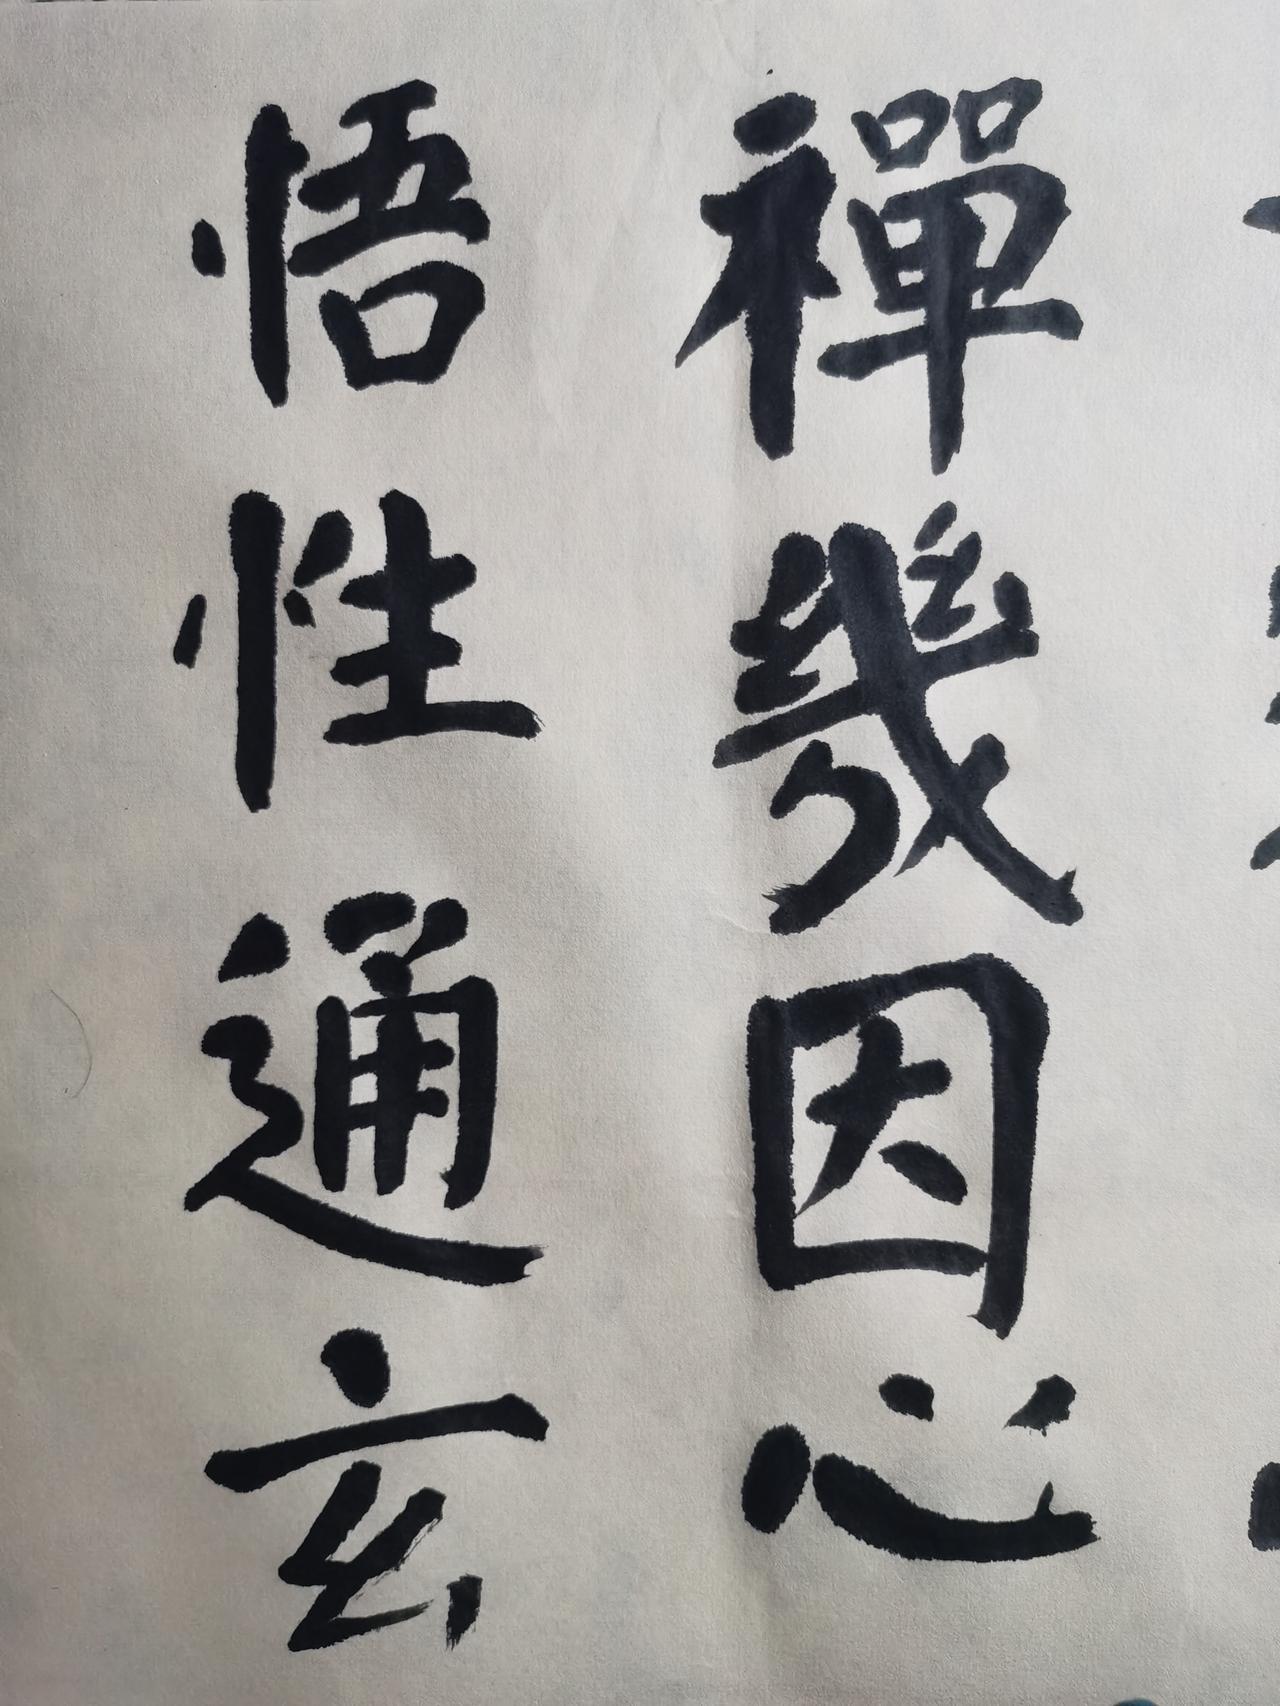 禪幾因心
悟性通玄